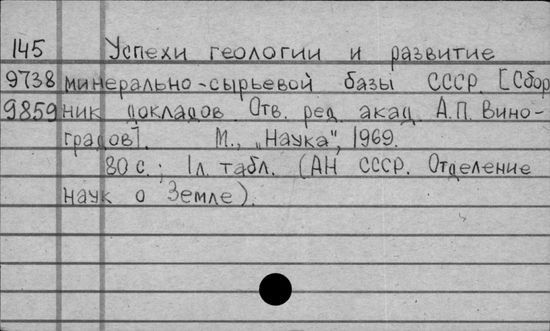 145 Успехи геологии и развитие
9738 минерально-сырьевой базы СССР. [Сбор
9859 ник докладов. Отв. ред. акад. А.П. Вино-
градов]. М., „Наука", 1969.
80 с.; 1л. табл. (АН СССР. Отделение
наук о Земле).